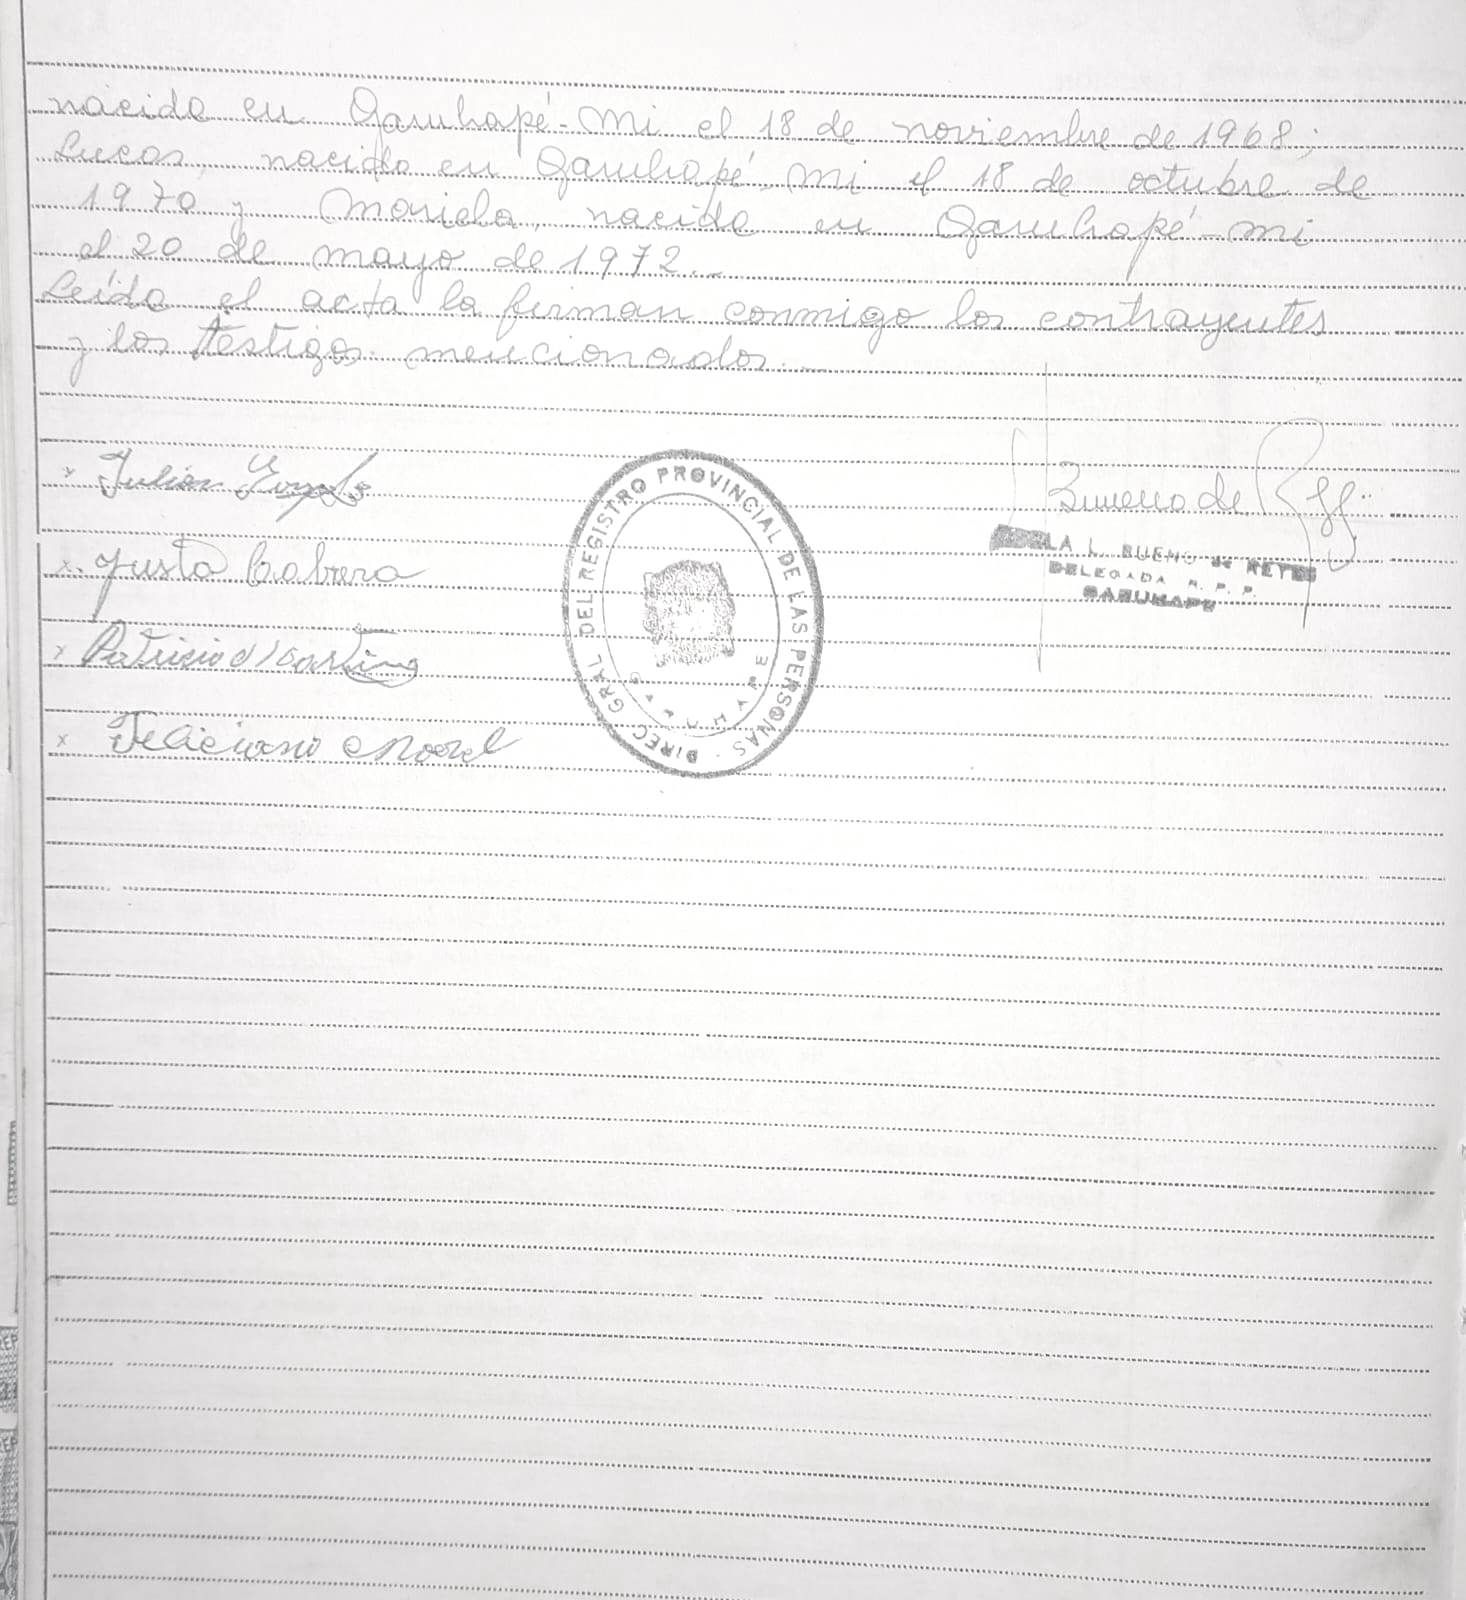 nacida en Garuhapé-Mi el 18 de noviembre de 1968;
Lucas, nacido en Garuhapé-Mi el 18 de octubre de
1970 y Mariela, nacida en Garuhapé-Mi
el 20 de mayo de 1972.-
Leída el acta la firman conmigo los contrayentes
y los testigos mencionados.-
x Julian
x. Justa Cabrera
x Patricio
x Feliciano
DIREC. GRAL. DEL REGISTRO PROVINCIAL DE LAS PERSONAS
Bueno de
LA L. BUENO de REYES
DELEGADA R. P. P.
GARUHAPE